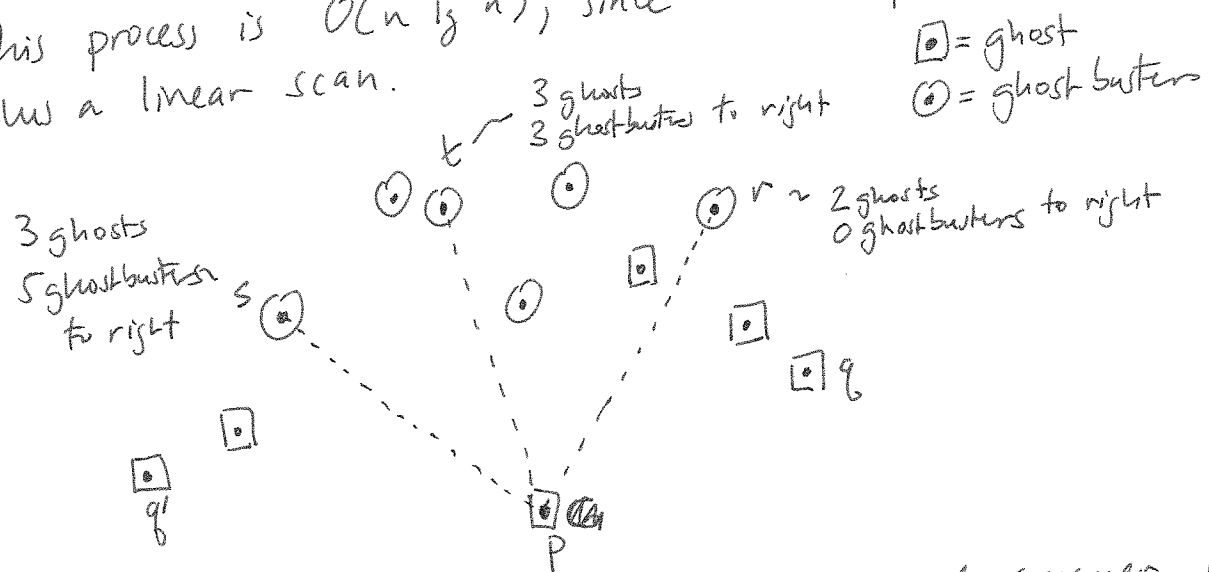 his process is O(n lg n), since
lus a linear scan.
= ghost
= ghostbusters
t
3 ghosts
3 ghostbusters to right
r ~ 2 ghosts
0 ghostbusters to right
3 ghosts
5 ghostbusters
to right
s
q
q'
p